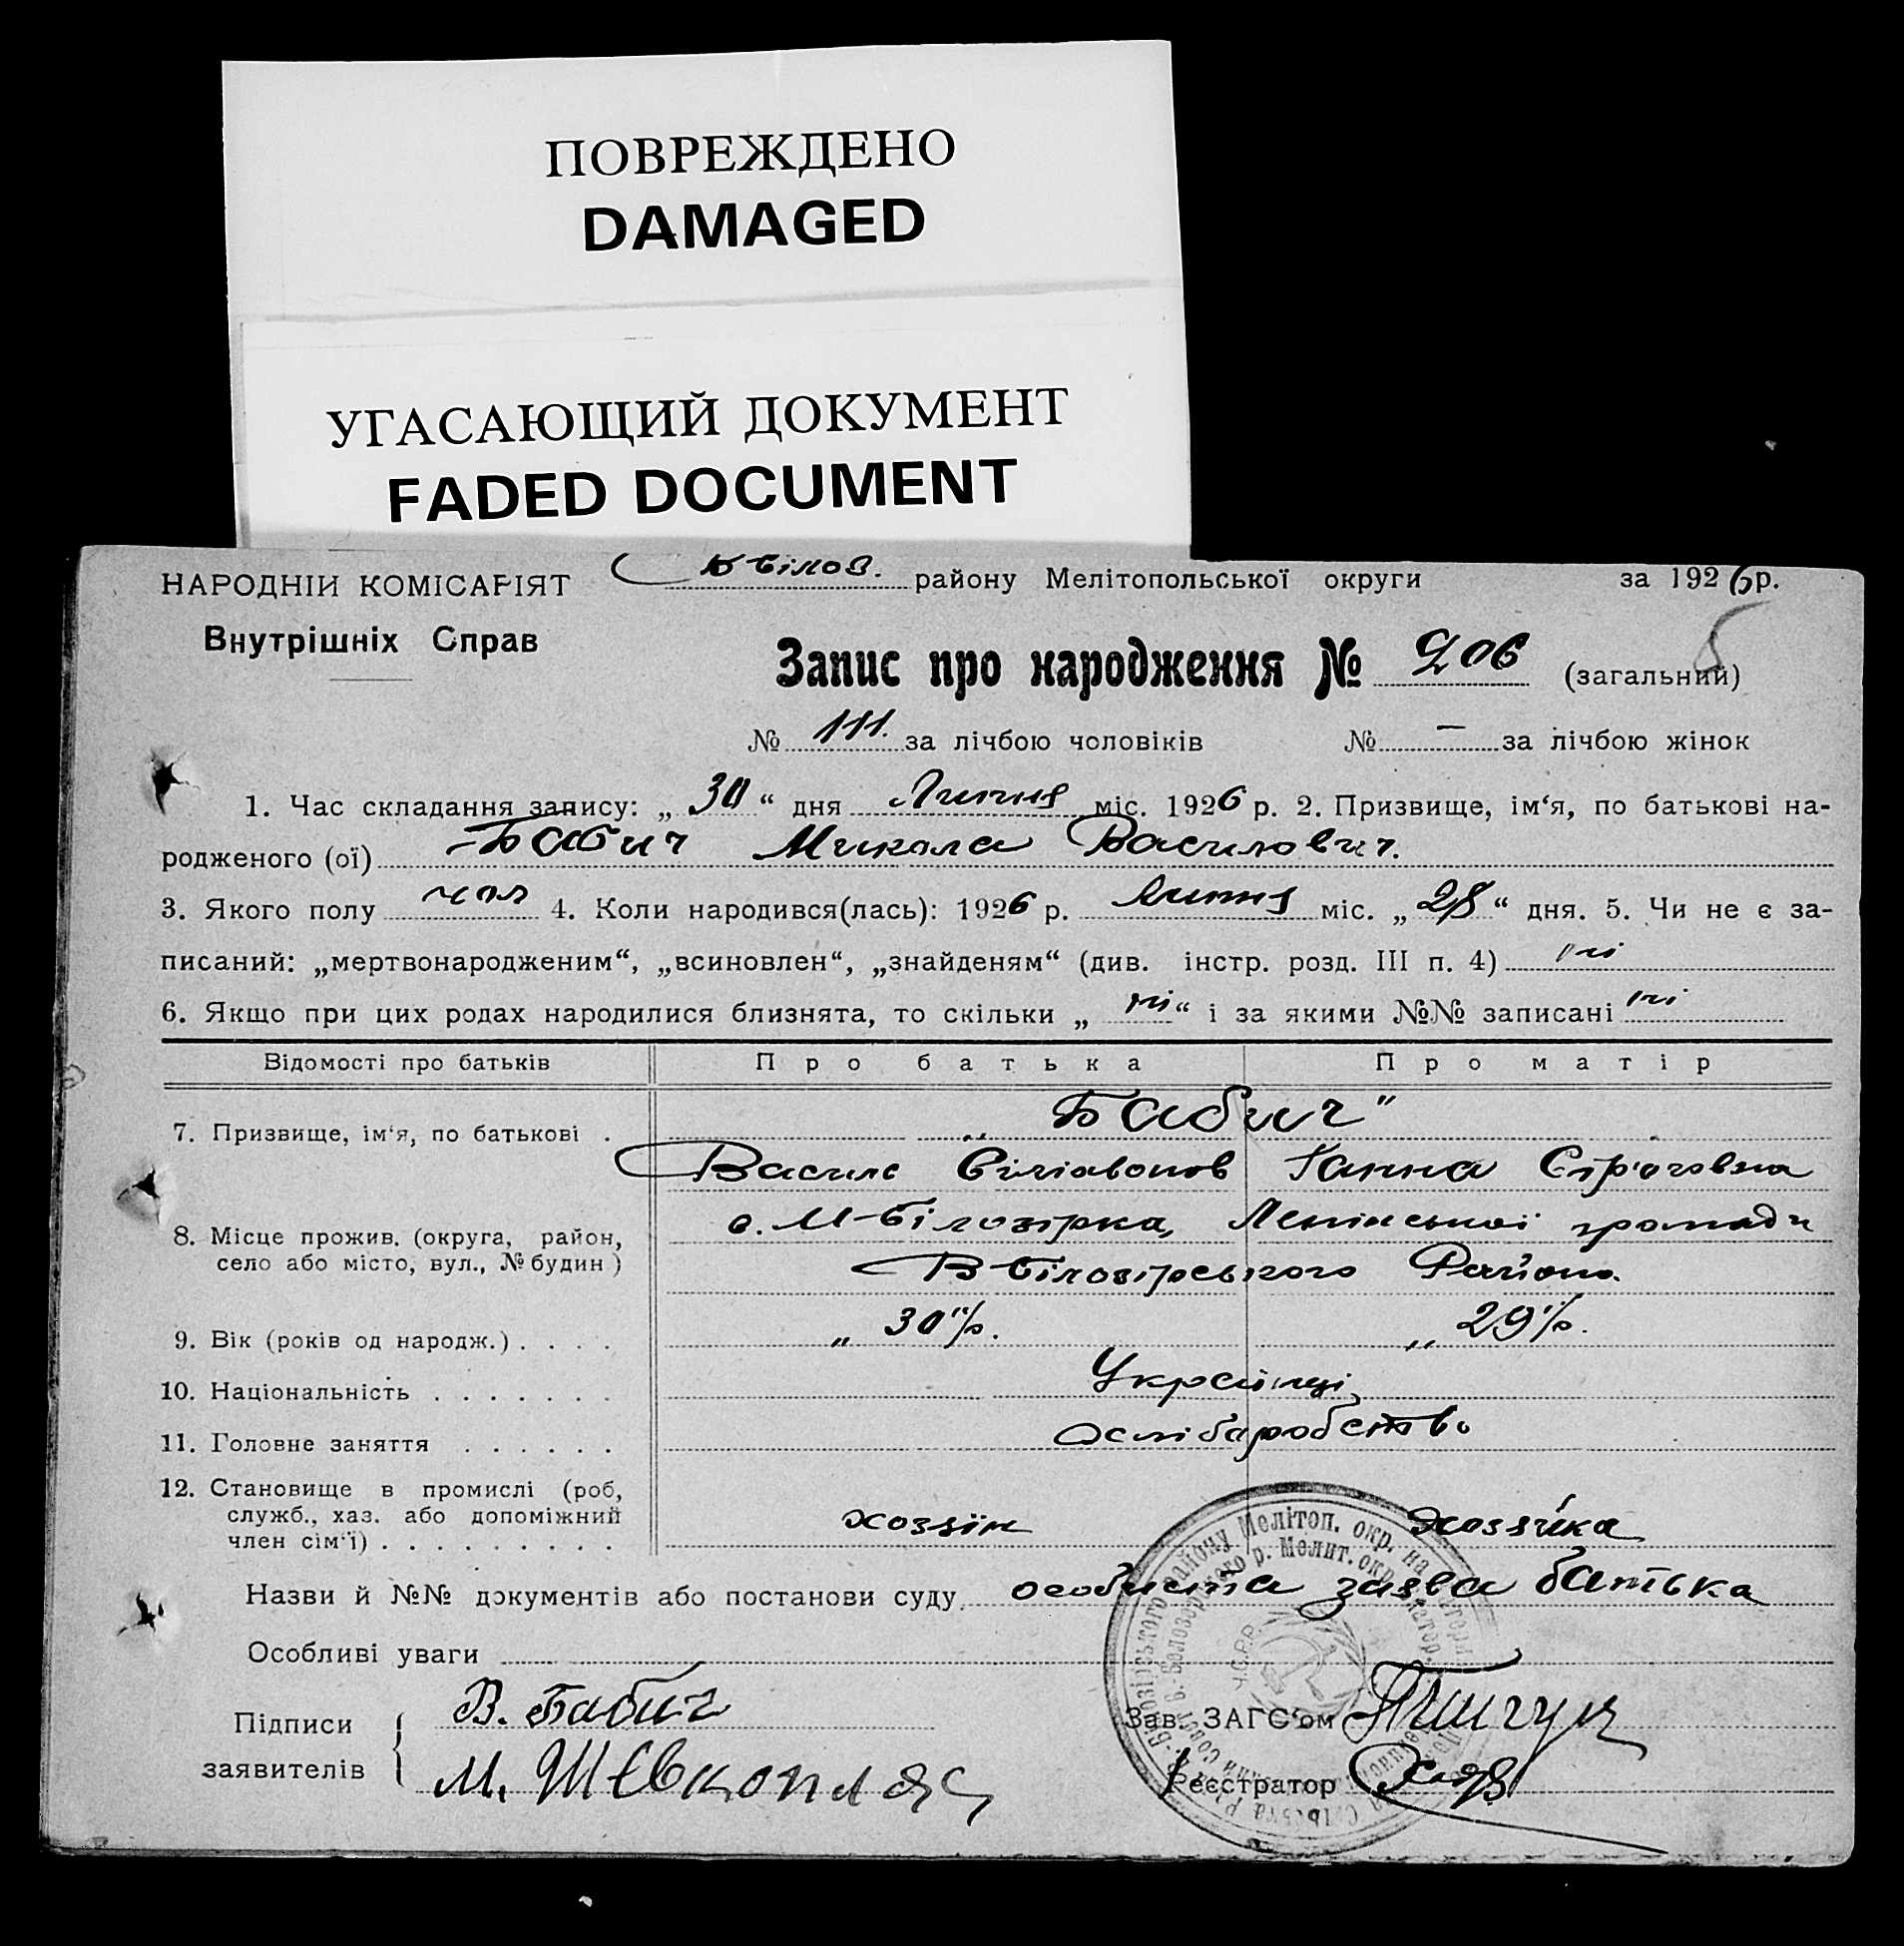 ПОВРЕЖДЕНО
DAMAGED
УГАСАЮЩИЙ ДОКУМЕНТ
FADED DOCUMENT
НАРОДНІЙ КОМІСАРІЯТ
Внутрішніх Справ
Білоз. району Мелітопольської округи за 1926 р.
Запис про народження № 206 (загальний)
№ 111. за лічбою чоловіків № — за лічбою жінок
1. Час складання запису: „ 30 “ дня Липня міс. 1926 р. 2. Призвище, ім‘я, по батькові на-
родженого (ої) Бабич Микола Василович.
3. Якого полу чол 4. Коли народився(лась): 1926 р. Липня міс. „ 28 “ дня. 5. Чи не є за-
писаний: „мертвонародженим“, „всиновлен“, „знайденям“ (див. інстр. розд. III п. 4) ні
6. Якщо при цих родах народилися близнята, то скільки „ ні “ і за якими №№ записані ні
Відомості про батьків Про батька Про матір
7. Призвище, ім‘я, по батькові . „Бабич”
Василь Ганна
8. Місце прожив. (округа, район, с. М-Білозірка, Ленінської громади
село або місто, вул., № будин) В Білозірського Району.
9. Вік (років од народж.) . . . . „ 30“ р. „ 29“ р.
10. Національність . . . . . . . Українці
11. Головне заняття . . . . . .
12. Становище в промислі (роб,
служб., хаз. або допоміжний хозяїн хозяйка
член сім‘ї) . . . . . . . . .
Назви й №№ документів або постанови суду особиста заява батька
Особливі уваги
Підписи заявителів В. Бабич
М. Шевкопляс
Зав. ЗАГС‘ом
Реєстратор
У.С.Р.Р.